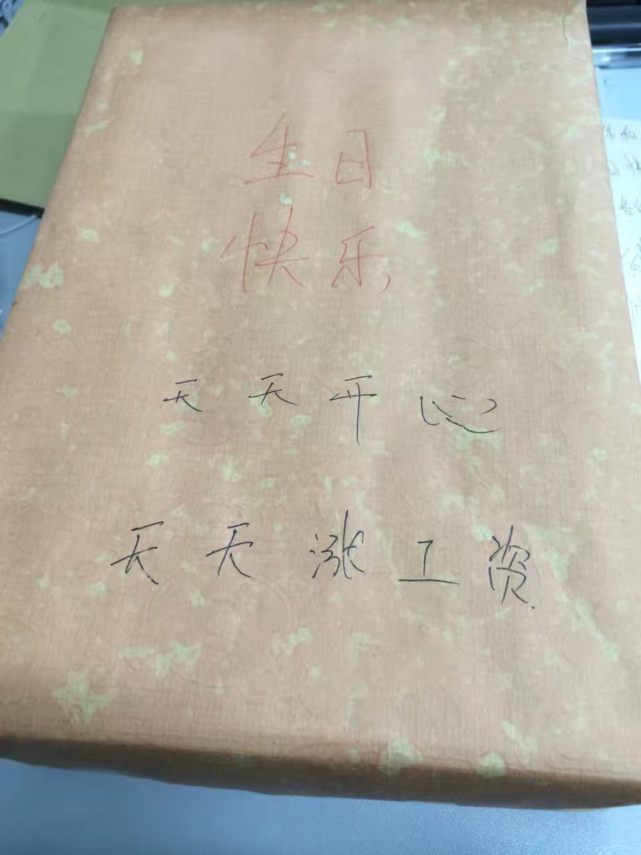 生日
快乐
天天开心
天天涨工资